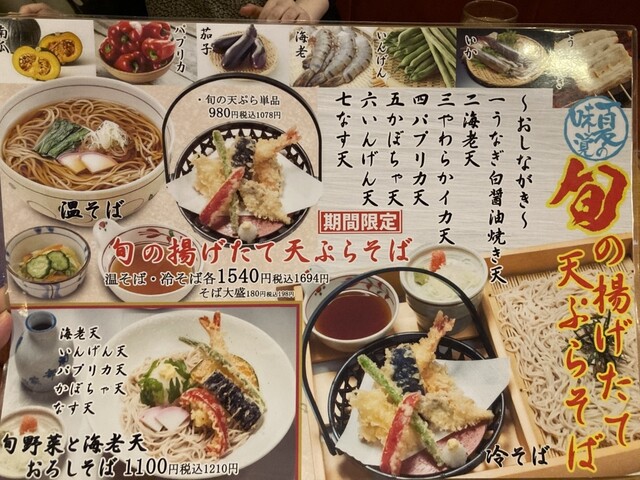 南瓜
パプリカ
茄子
海老
いんげん
いか
夏の
味覚
旬の揚げたて
天ぷらそば
～おしながき～
一うなぎ白醤油焼き天
二海老天
三やわらかイカ天
四パプリカ天
五かぼちゃ天
六いんげん天
七なす天
・旬の天ぷら単品
980円税込1078円
温そば
期間限定
旬の揚げたて天ぷらそば
温そば・冷そば各1540円税込1694円
そば大盛180円税込198円
海老天
いんげん天
パプリカ天
かぼちゃ天
なす天
旬野菜と海老天
おろしそば 1100円税込1210円
冷そば